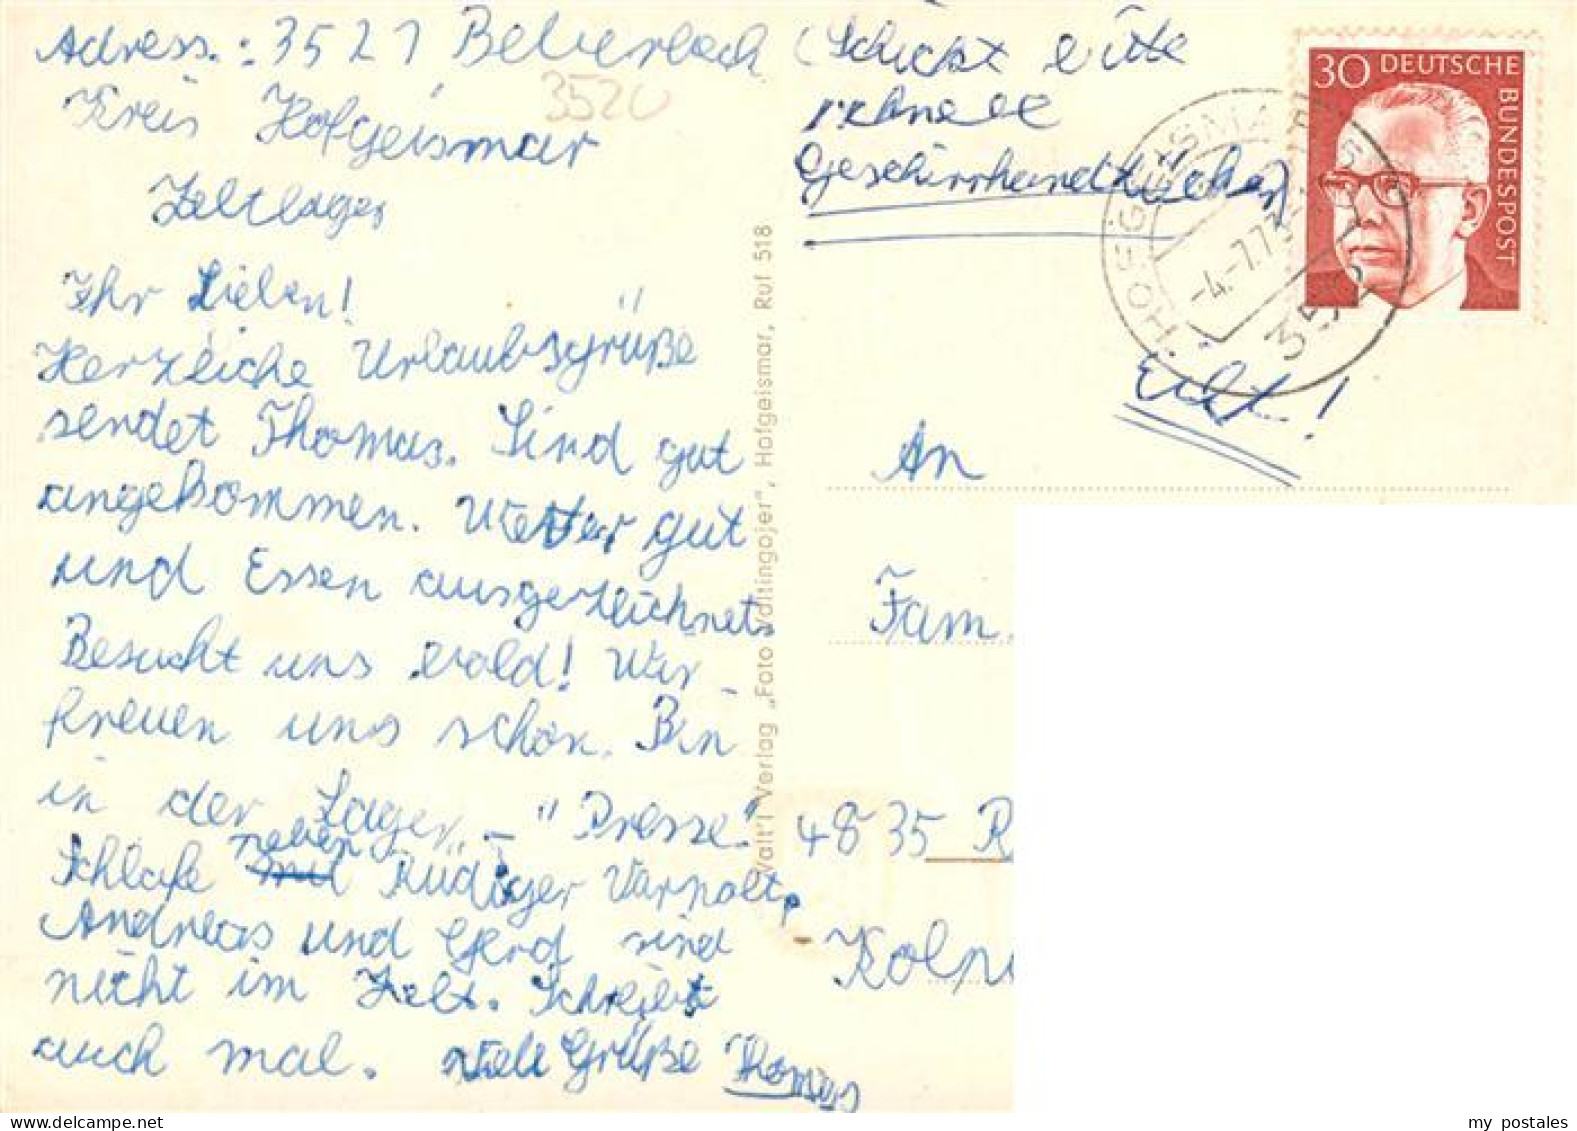 Adress.: 3521 Beberbeck
3520
Kreis Hofgeismar
Zeltlager
Ihr Lieben!
Herzliche Urlaubsgrüße
sendet Thomas. Sind gut
angekommen. Wetter gut
und Essen ausgezeichnet.
Besucht uns bald! Wir
freuen uns schon. Bin
in der Lager - "Presse".
Schlafe neben Rüdiger Varnolt,
Andreas und Gerd sind
nicht im Zelt. Schreibt
auch mal. Viele Grüße Thomas
Valt'l Verlag „Foto Valtingojer", Hofgeismar, Ruf 518
(Schickt bitte
schnell
Geschirrhandtücher)
Eilt!
30 DEUTSCHE
BUNDESPOST
HOFGEISMAR
-4.-7.73
3520
An
Fam.
4835 R
Kolpi
my postales